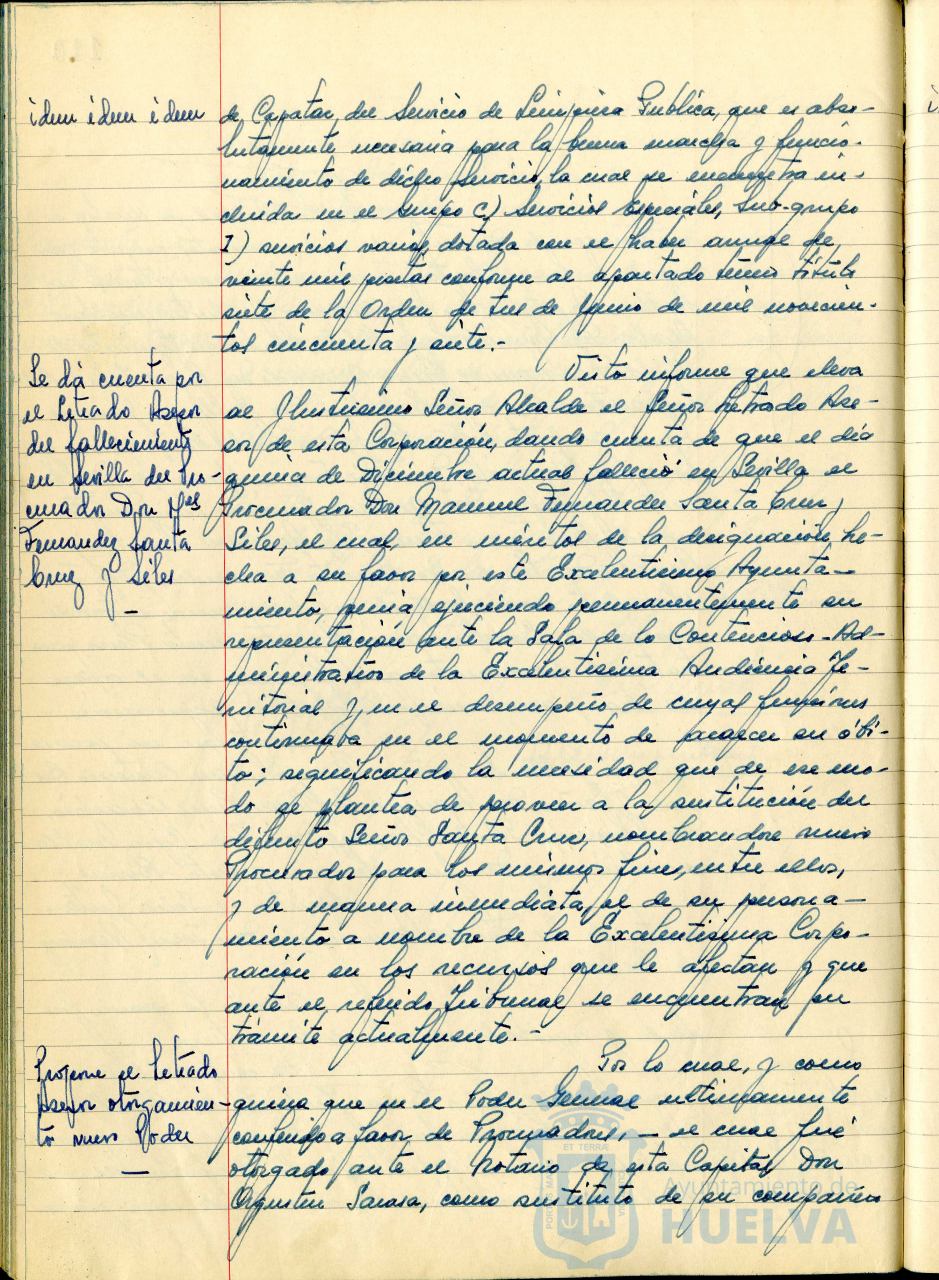 idem idem idem
de Capataz del Servicio de Limpieza Publica, que es abso-
lutamente necesaria para la buena marcha y funcio-
namiento de dicho Servicio, la cual se encuentra in-
cluida en el Grupo C) Servicios Especiales, Sub-grupo
I) servicios varios, dotada con el haber anual de
veinte mil pesetas conforme al apartado título
siete de la Orden de tres de Junio de mil novecien-
tos cincuenta y siete.-
Se dá cuenta por
el Letrado Asesor
del fallecimiento
en Sevilla del Pro-
curador Don Mel
Fernandez Santa
Cruz y Siles
Visto informe que eleva
al Ilustrisimo Señor Alcalde el Señor Letrado Ase-
sor de esta Corporación, dando cuenta de que el día
quince de Diciembre actual falleció en Sevilla el
Procurador Don Manuel Fernandez Santa Cruz y
Siles, el cual, en méritos de la designación he-
cha a su favor por este Excelentisimo Ayunta-
miento, venia ejerciendo permanentemente su
representación ante la Sala de lo Contencioso-Ad-
ministrativo de la Excelentisima Audiencia Te-
rritorial y, en el desempeño de cuyas funciones
continuaba en el momento de acaecer su óbi-
to; significando la necesidad que de ese mo-
do se plantea de proveer a la sustitución del
difunto Señor Santa Cruz, nombrandose nuevo
Procurador para los mismos fines, entre ellos,
y de manera inmediata, el de su persona-
miento a nombre de la Excelentisima Corpo-
ración en los recursos que le afectan y que
ante el referido Tribunal se encuentran en
trámite actualmente.-
Propone el Letrado
Asesor otorgamien-
to nuevo Poder
Por lo cual, y como
quiera que en el Poder General ultimamente
conferido a favor de Procuradores, - el cual fué
otorgado ante el Notario de esta Capital Don
Agustin Sarasa, como sustituto de su compañero
Ayuntamiento de
HUELVA